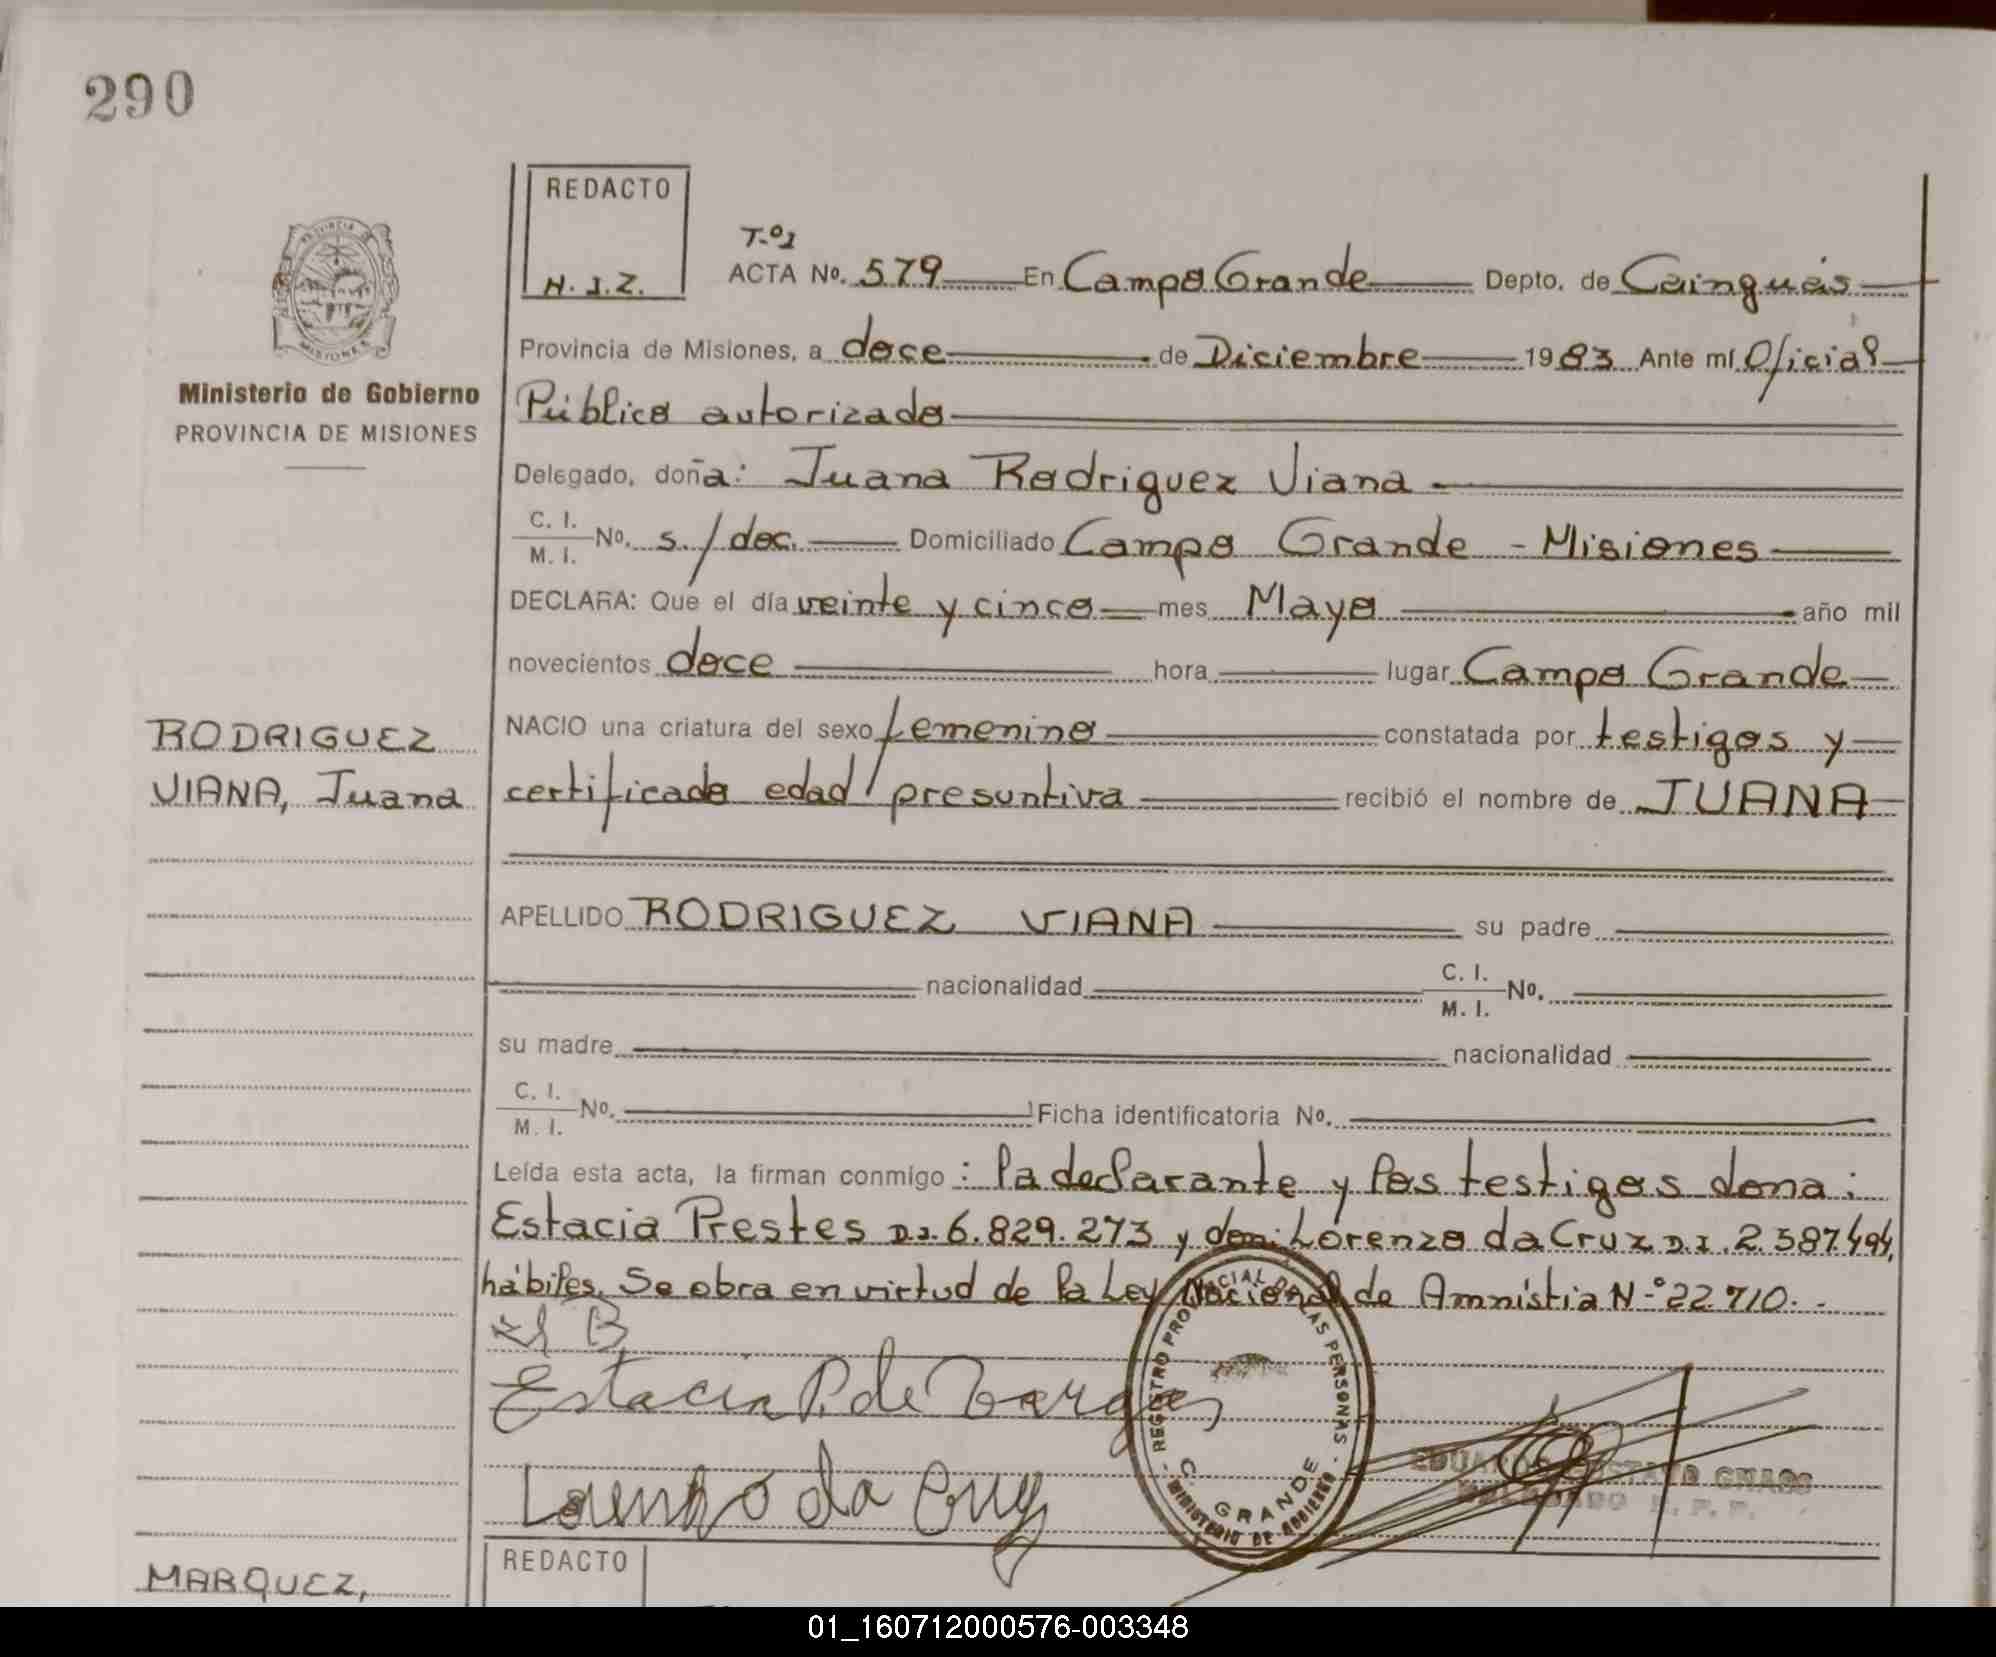 290
REDACTO
H. J. Z.
PROVINCIA DE
MISIONES
Ministerio de Gobierno
PROVINCIA DE MISIONES
T.º1
ACTA No. 579 En Campo Grande Depto. de Cainguás
Provincia de Misiones, a doce de Diciembre 1983 Ante mí Oficial
Público autorizado
Delegado, doña: Juana Rodriguez Viana
C. I.
M. I. No. s./doc. Domiciliado Campo Grande - Misiones
DECLARA: Que el día veinte y cinco mes Mayo año mil
novecientos doce hora lugar Campo Grande
NACIO una criatura del sexo femenino constatada por testigos y
certificado edad presuntiva recibió el nombre de JUANA
RODRIGUEZ
VIANA, Juana
APELLIDO RODRIGUEZ VIANA su padre
nacionalidad C. I.
M. I. No.
su madre nacionalidad
C. I.
M. I. No. Ficha identificatoria No.
Leída esta acta, la firman conmigo : la declarante y los testigos dona:
Estacia Prestes D.I. 6.829.273 y don: Lorenzo da Cruz D.I. 2.587.494,
hábiles. Se obra en virtud de la Ley Nacional de Amnistia N-º 22.710.-
Estacia P. de Vargas
Lorenzo da Cruz
REGISTRO PROVINCIAL DE LAS PERSONAS
C. GRANDE
MINISTERIO DE GOBIERNO
EDUARDO GUSTAVO GNASS
DELEGADO R. P. P.
REDACTO
MARQUEZ,
01_160712000576-003348